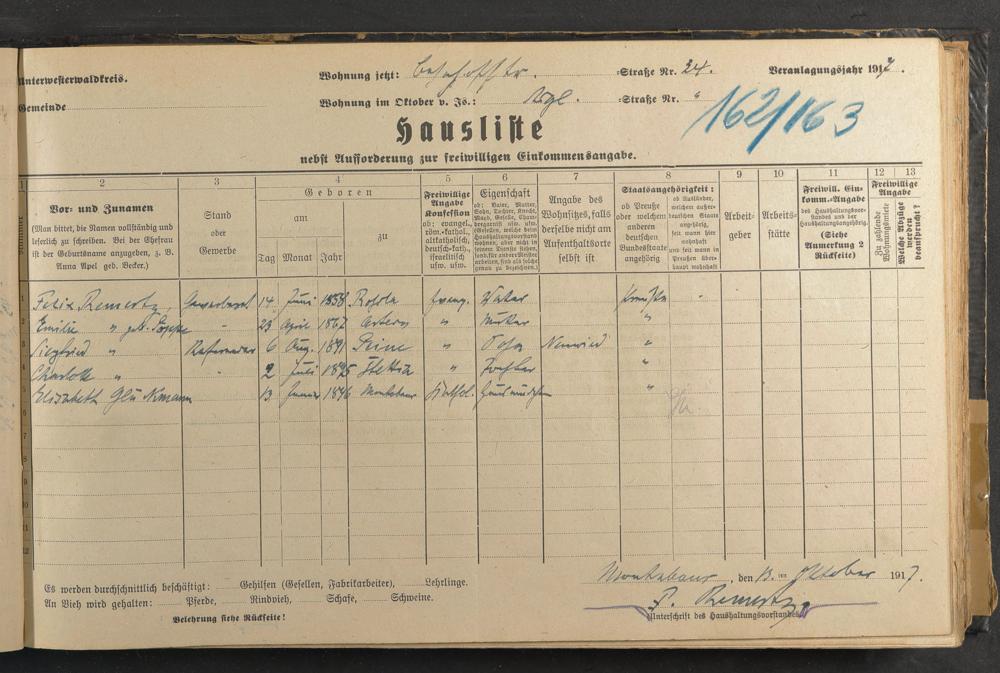 Unterwesterwaldkreis.
Wohnung jetzt: Bahnhofstr. -Straße Nr. 24.
Veranlagungsjahr 1917.
Gemeinde
Wohnung im Oktober v. Js.: dsgl. -Straße Nr. "
162/163
Hausliste
nebst Aufforderung zur freiwilligen Einkommensangabe.
1 2 3 4 5 6 7 8 9 10 11 12 13
Nummer
Vor- und Zunamen
(Man bittet, die Namen vollständig und
leserlich zu schreiben. Bei der Ehefrau
ist der Geburtsname anzugeben, z. B.
Anna Apel geb. Becker.)
Stand
oder
Gewerbe
Geboren
am
zu
Tag Monat Jahr
Freiwillige
Angabe
Konfession
ob: evangel.,
röm.-kathol.,
altkatholisch,
deutsch-kath.,
israelitisch
usw. usw.
Eigenschaft
ob: Vater, Mutter,
Sohn, Tochter, Knecht,
Angabe des
Wohnsitzes, falls
derselbe nicht am
Aufenthaltsorte
selbst ist
Staatsangehörigkeit:
ob Preuße
oder welchem
anderen
deutschen
Bundesstaate
angehörig
ob Ausländer,
welchem außer-
deutschen Staate
angehörig,
seit wann hier
wohnhaft
und seit wann in
Preußen über-
haupt wohnhaft
Arbeit-
geber
Arbeits-
stätte
Freiwill. Ein-
komm.-Angabe
des Haushaltungsvor-
standes und der
Haushaltungsangehörig.
(Siehe
Anmerkung 2
Rückseite)
Freiwillige
Angabe
Zu zahlende
Wohnungsmiete
Welche Abzüge
werden
beansprucht?
1 Felix Remertz, 14 Juni 1858 Rossla Evang. Vater Preuße -
2 Emilie " geb. Poppe - 23 April 1867 Artern " Mutter "
3 Siegfried " Referendar 6 Aug. 1891 Peine " Sohn Neuwied "
4 Charlotte " - 2 Juli 1895 Stettin " Tochter "
5 Elisabeth Glückmann 13 Januar 1896 Montabaur Kathol. Hausmädchen "
6
7
8
9
10
11
12
Es werden durchschnittlich beschäftigt: Gehilfen (Gesellen, Fabrikarbeiter), Lehrlinge.
An Vieh wird gehalten: Pferde, Rindvieh, Schafe, Schweine.
Belehrung siehe Rückseite!
Montabaur, den 13. ten Oktober 1917.
F. Remertz
Unterschrift des Haushaltungsvorstandes